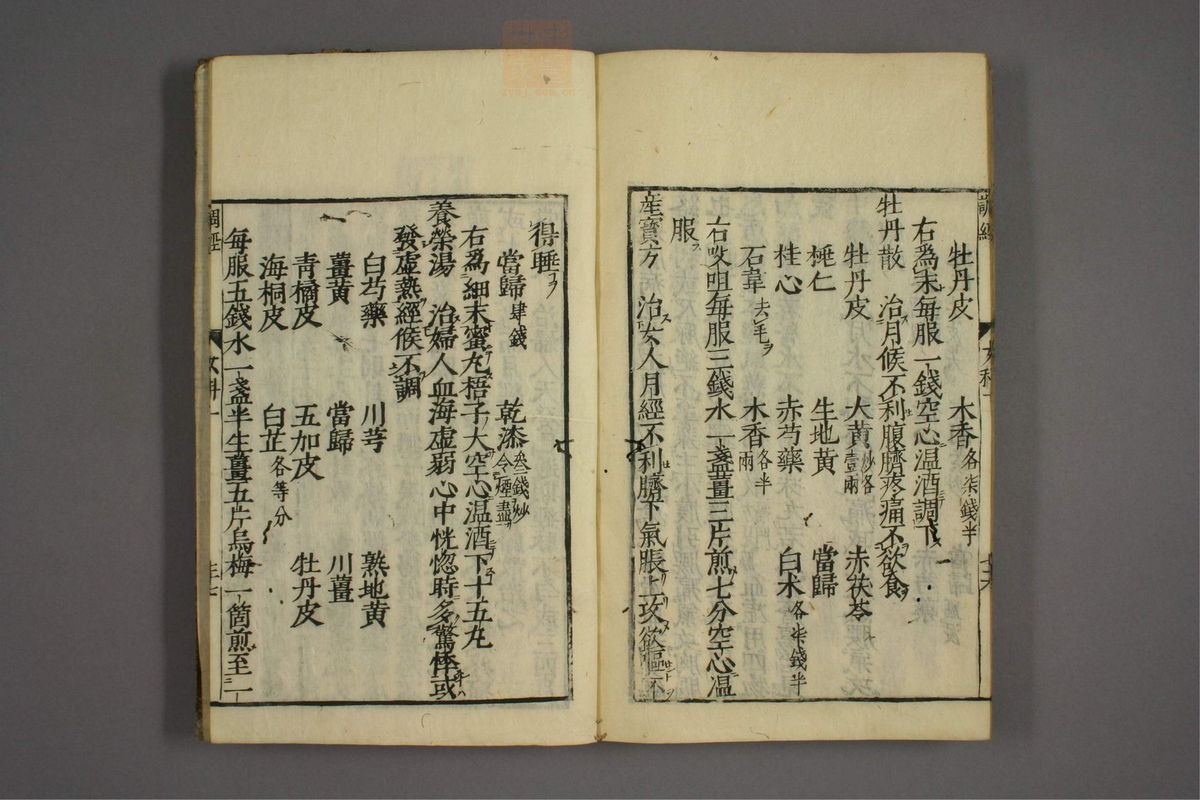 牡丹皮 木香各柒錢半
右為末每服一錢空心温酒調下
牡丹散 治月候不利腹臍疼痛不欲食
牡丹皮 大黄炒各壹兩 赤茯苓
桃仁 生地黄 當歸
桂心 赤芍藥 白术各柒錢半
石韋去毛ヲ 木香各半兩
右㕮咀每服三錢水一盞薑三片煎七分空心温
服ス
産寳方 治ス女人月經不利臍下氣脹上攻欲嘔不
得睡ヲ
當歸肆錢 乾漆叁錢炒令煙盡
右為細末蜜丸梧子大空心温酒下十五丸
養榮湯 治婦人血海虚弱心中恍惚時多驚悸或
發虚熱經候不調
白芍藥 川芎 熟地黄
薑黄 當歸 川薑
青橘皮 五加皮 牡丹皮
海桐皮 白芷各等分
每服五錢水一盞半生薑五片烏梅一箇煎至一
調經 女科一